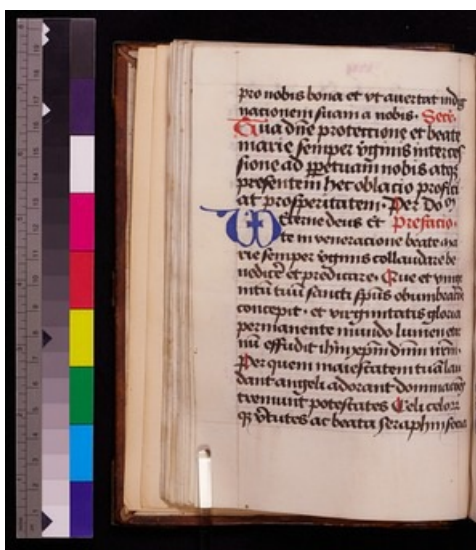 pro nobis bona et vt auertat indig
nationem suam a nobis. Secr.
Tua dñe protectione et beate
marie semper v̄ginis interces
sione ad ꝑpetuam nobis atqꝫ
presentem hec oblacio profici
at prosperitatem. Per do
eterne deus Et Prefacio.
te in veneracione beate ma
rie semper v̄ginis collaudare be
nedicē et predicare. Que et vnige
nitū tuū sancti spūs obumbracōe
concepit. et virginitatis gloria
permanente mundo lumen eter
nū effudit ihm̄ xp̄m dn̄m nrm̄.
Per quem maiestatem tuā lau
dant angeli adorant dominacōes
tremunt potestates Celi celorū
qꝫ v̄tutes ac beata seraphin socia